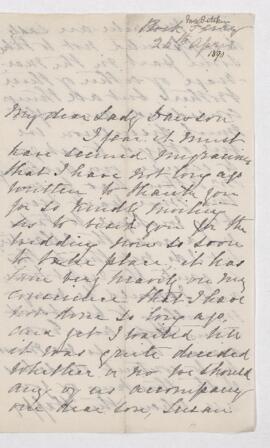 Rock Ferry
24th April
1893
My dear Lady Dawson
I fear it must
have seemed ungracious
that I have not long ago
written to thank you
for so kindly inviting
us to visit you for the
wedding now so soon
to take place. it has
lain very heavily on my
conscience that I have
not done so long ago,
and yet I waited till
it was quite decided
whether or no we should
any of us accompany
our dear son, Susan